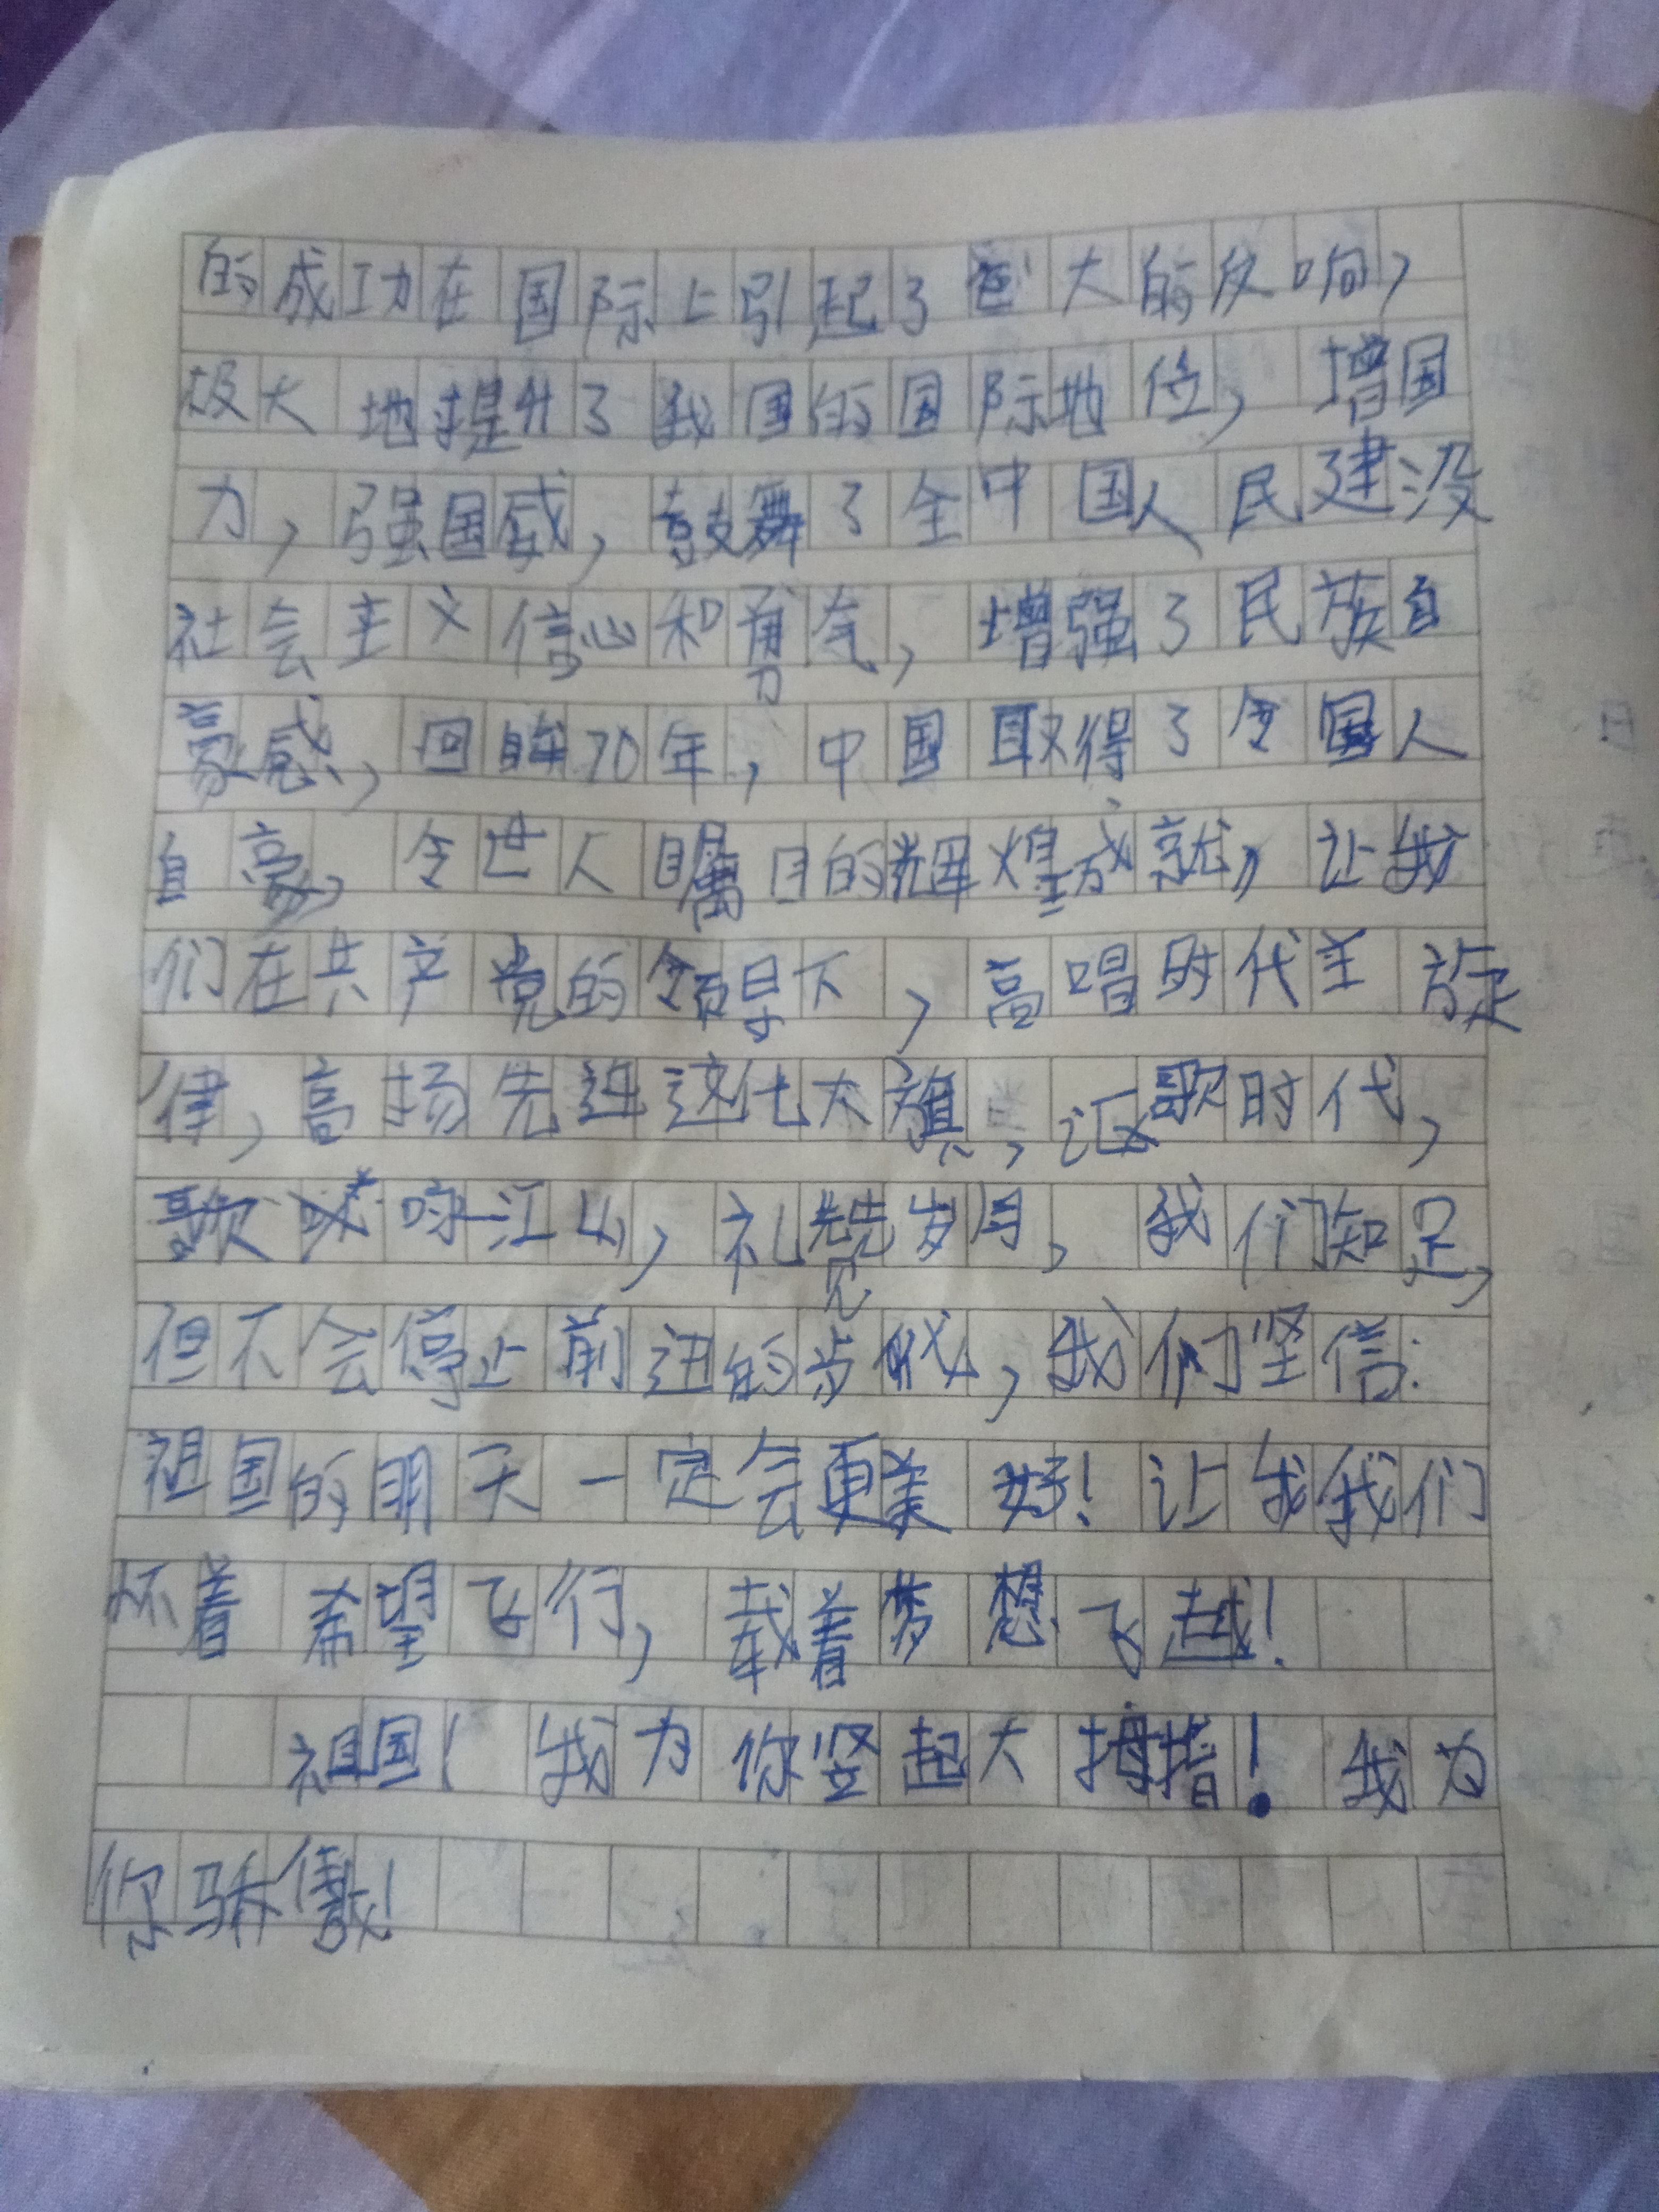 的成功在国际上引起了巨大的反响,
极大地提升了我国的国际地位,增国
力,强国威,鼓舞了全中国人民建设
社会主义信心和勇气,增强了民族自
豪感,回眸70年,中国取得了令国人
自豪,令世人瞩目的辉煌成就,让我
们在共产党的领导下,高唱时代主旋
律,高扬先进这化大旗,讴歌时代,
歌咏江山,礼赞岁月,我们知足,
但不会停止前进的步伐,我们坚信:
祖国的明天一定会更美好!让我我们
怀着希望飞行,载着梦想飞越!
祖国!我为你竖起大拇指!我为
你骄傲!